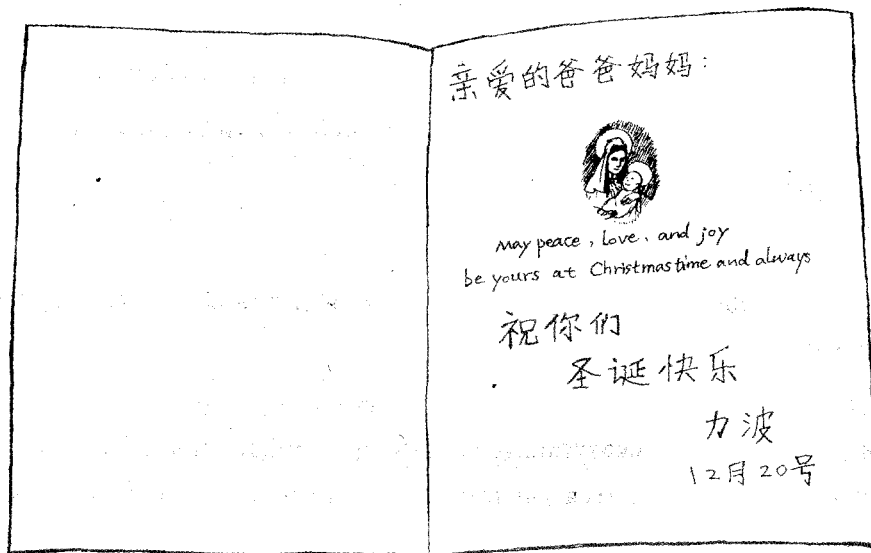 亲爱的爸爸妈妈：
May peace, love, and joy
be yours at Christmastime and always
祝你们
圣诞快乐
力波
12月20号